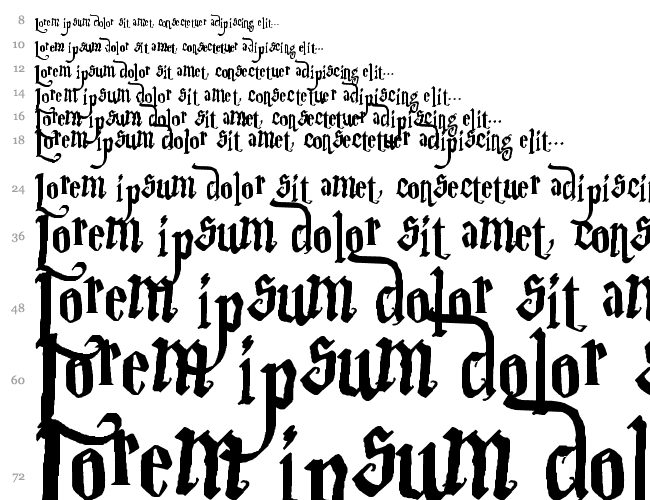 8 Lorem ipsum dolor sit amet, consectetuer adipiscing elit...
10 Lorem ipsum dolor sit amet, consectetuer adipiscing elit...
12 Lorem ipsum dolor sit amet, consectetuer adipiscing elit...
14 Lorem ipsum dolor sit amet, consectetuer adipiscing elit...
16 Lorem ipsum dolor sit amet, consectetuer adipiscing elit...
18 Lorem ipsum dolor sit amet, consectetuer adipiscing elit...
24 Lorem ipsum dolor sit amet, consectetuer adipisci
36 Lorem ipsum dolor sit amet, cons
48 Lorem ipsum dolor sit am
60 Lorem ipsum dolor s
72 Lorem ipsum dol